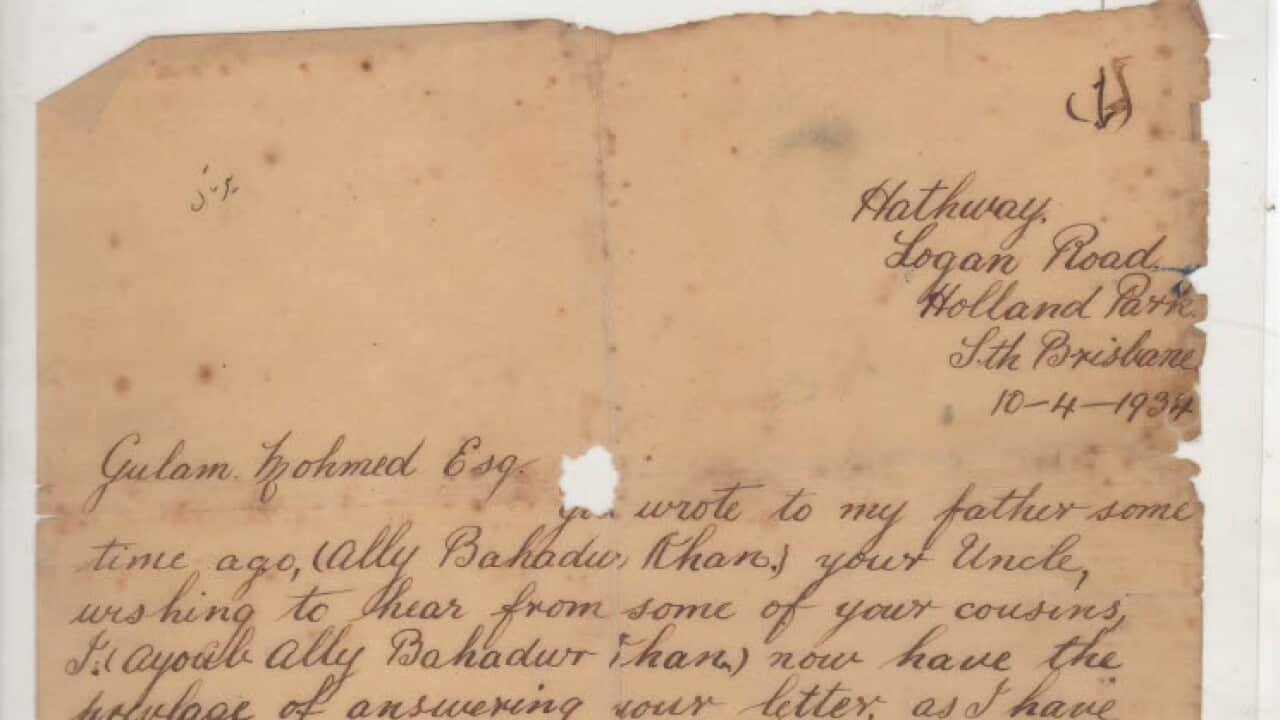 Hathway.
Logan Road.
Holland Park.
Sth Brisbane
10-4-1934
Gulam. Mohmed Esq.
you wrote to my father some
time ago, (Ally Bahadur Khan.) your Uncle,
wishing to hear from some of your cousins,
I. (Ayoub Ally Bahadur Khan.) now have the
privlage of answering your letter, as I have